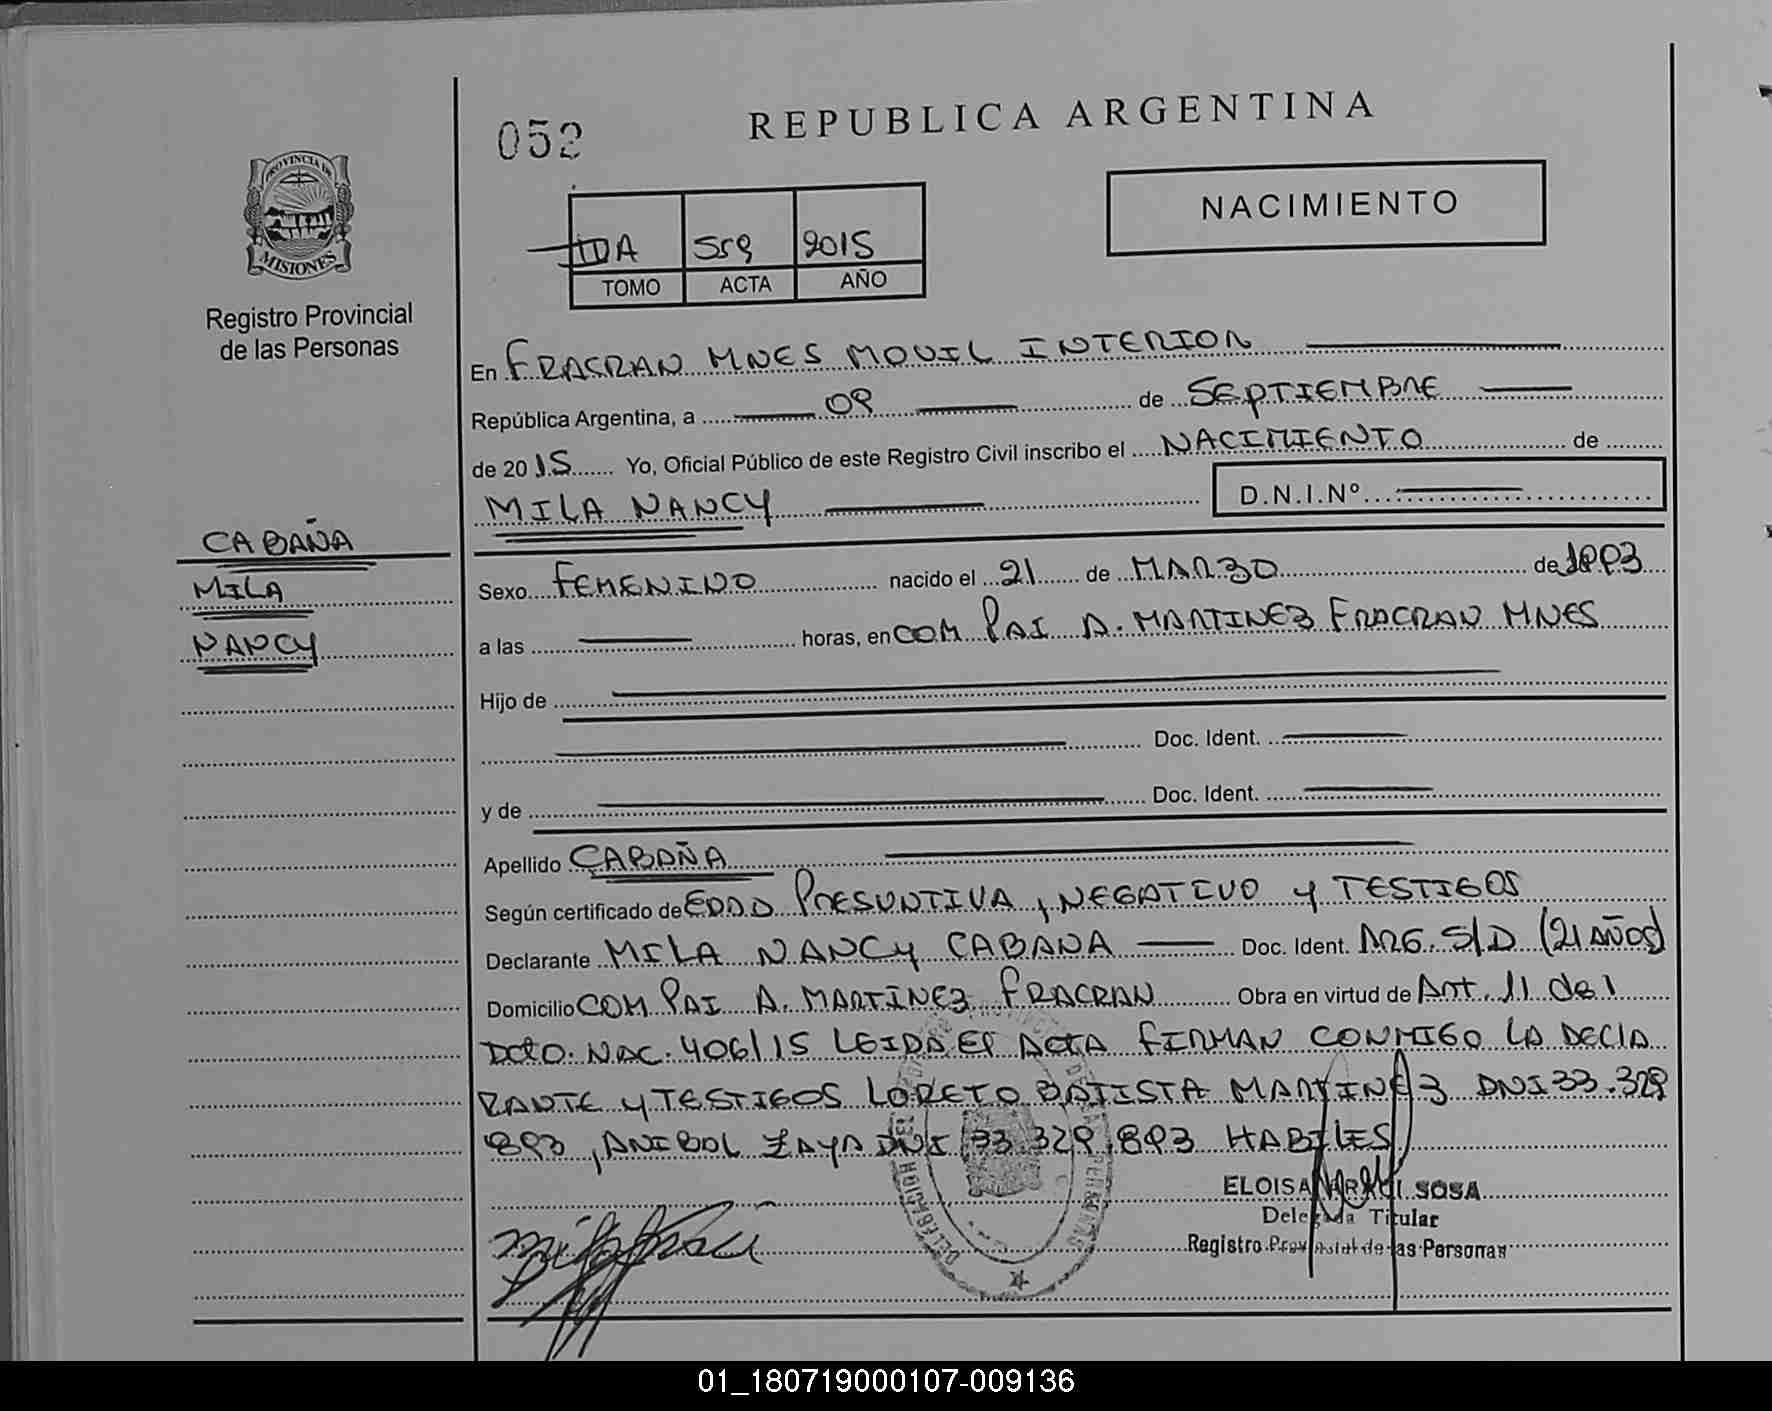 052
REPUBLICA ARGENTINA
PROVINCIA DE
MISIONES
Registro Provincial
de las Personas
NACIMIENTO
IDA 559 2015
TOMO ACTA AÑO
En FRACRAN MNES MOVIL INTERIOR
República Argentina, a 09 de SEPTIEMBRE
de 2015 Yo, Oficial Público de este Registro Civil inscribo el NACIMIENTO de
MILA NANCY D.N.I.Nº
CABAÑA
MILA
NANCY
Sexo FEMENINO nacido el 21 de MARZO de 1993
a las horas, en COM PAI A. MARTINEZ FRACRAN MNES
Hijo de
Doc. Ident.
y de Doc. Ident.
Apellido CABAÑA
Según certificado de EDAD PRESUNTIVA, NEGATIVO Y TESTIGOS
Declarante MILA NANCY CABAÑA Doc. Ident. ARG. S/D (21 AÑOS)
Domicilio COM PAI A. MARTINEZ FRACRAN Obra en virtud de Art. 11 del
Dcto. NAC. 406/15 LEIDA EL ACTA FIRMAN CONMIGO LA DECLA
RANTE Y TESTIGOS LORETO BATISTA MARTINEZ DNI 33.329
893, ANIBAL ZAYA DNI 33.329.893 HABILES
ELOISA SOSA
Delegada Titular
Registro Provincial de las Personas
01_180719000107-009136